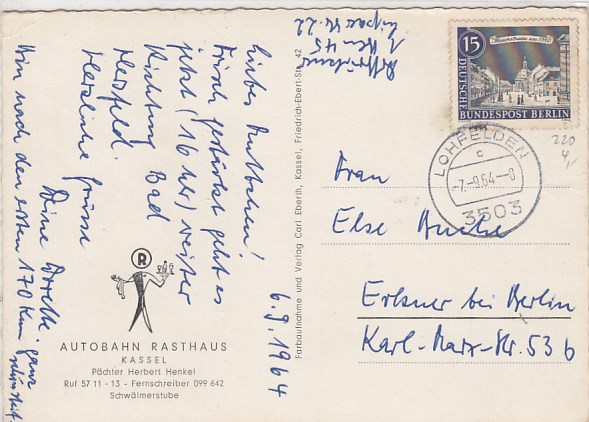 6.9.1964
Liebes Muttchen!
Frisch gestärkt geht es
jetzt (16 Uhr) weiter
Richtung Bad
Hersfeld.
Herzliche Grüsse
Deine
Bin nach den ersten 170 km ganz
1 Bln 45
AUTOBAHN RASTHAUS
KASSEL
Pächter Herbert Henkel
Ruf 57 11 - 13 - Fernschreiber 099 642
Schwälmerstube
Farbaufnahme und Verlag Carl Eberth, Kassel, Friedrich-Ebert-Str. 42
R
15
DEUTSCHE
BUNDESPOST BERLIN
LOHFELDEN
c
-7.-9.64-8
3503
220
4,-
Frau
Else
Erkner bei Berlin
Karl-Marx-Str. 53 b